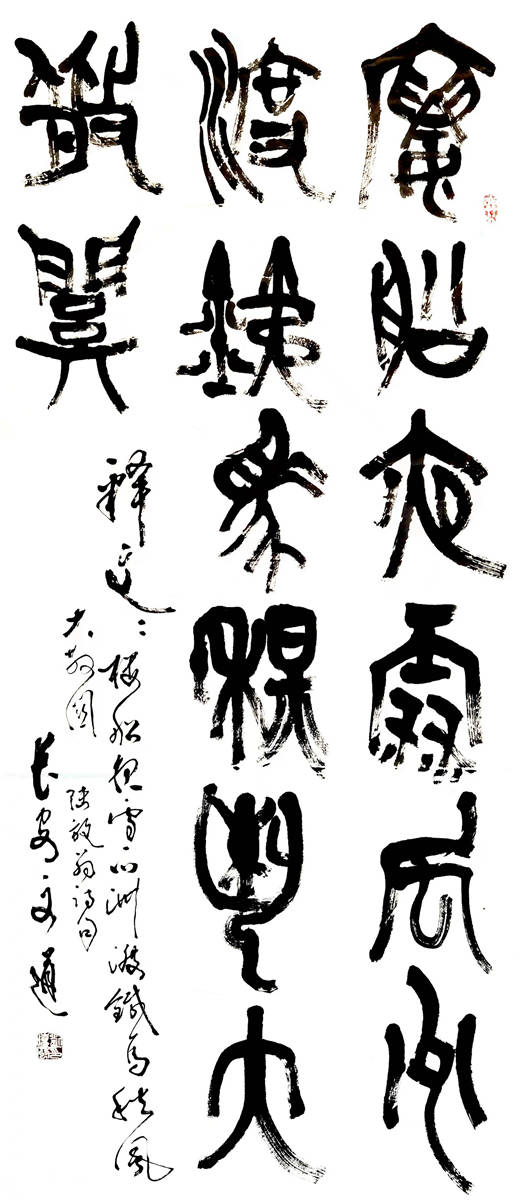 樓船夜雪瓜洲
渡鐵馬秋風大
散關
釋文：樓船夜雪瓜洲渡鐵馬秋風
大散關
陸放翁詩句
長安文通